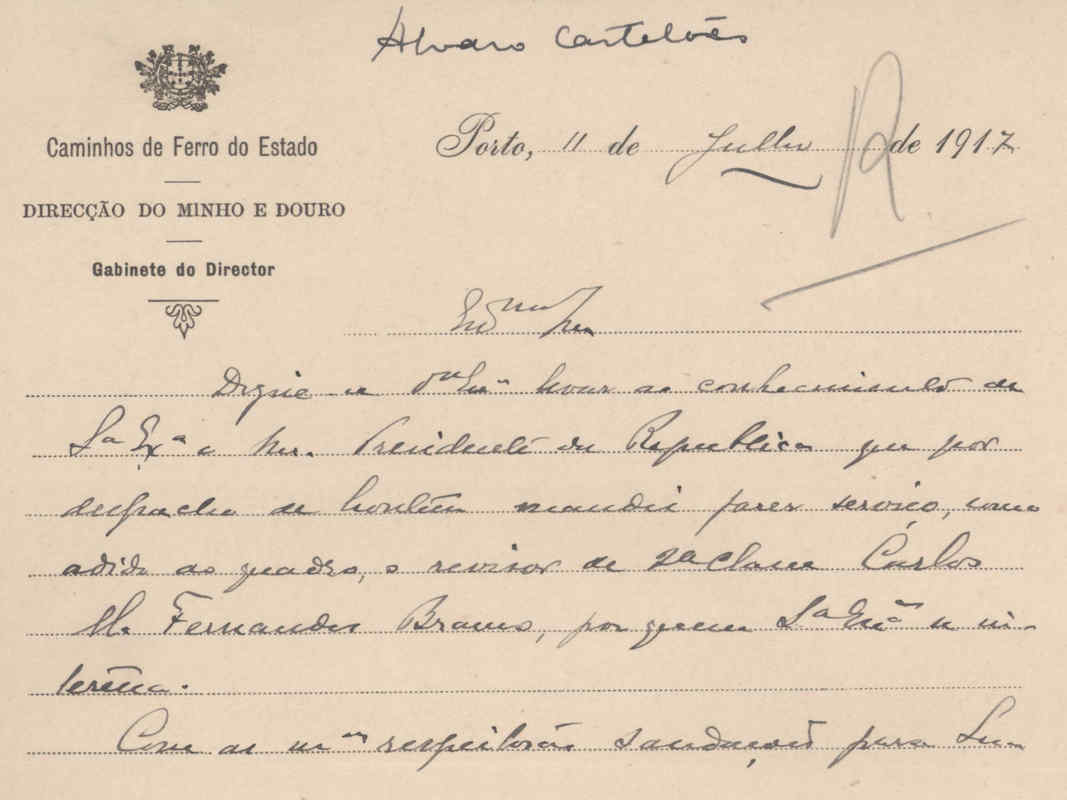 Alvaro Castelões
Caminhos de Ferro do Estado
DIRECÇÃO DO MINHO E DOURO
Gabinete do Director
Porto, 11 de Julho de 1917
R
Exmo Snr
Digne-se V. Exa levar ao conhecimento de
Sa Exa o Snr. Presidente da Republica que por
despacho de hontem mandei fazer serviço, como
adido ao quadro, o revisor de 2a classe Cárlos
M. Fernandes Bravo, por quem Sa Exa se in-
teressa.
Com as mas respeitosas saudações para